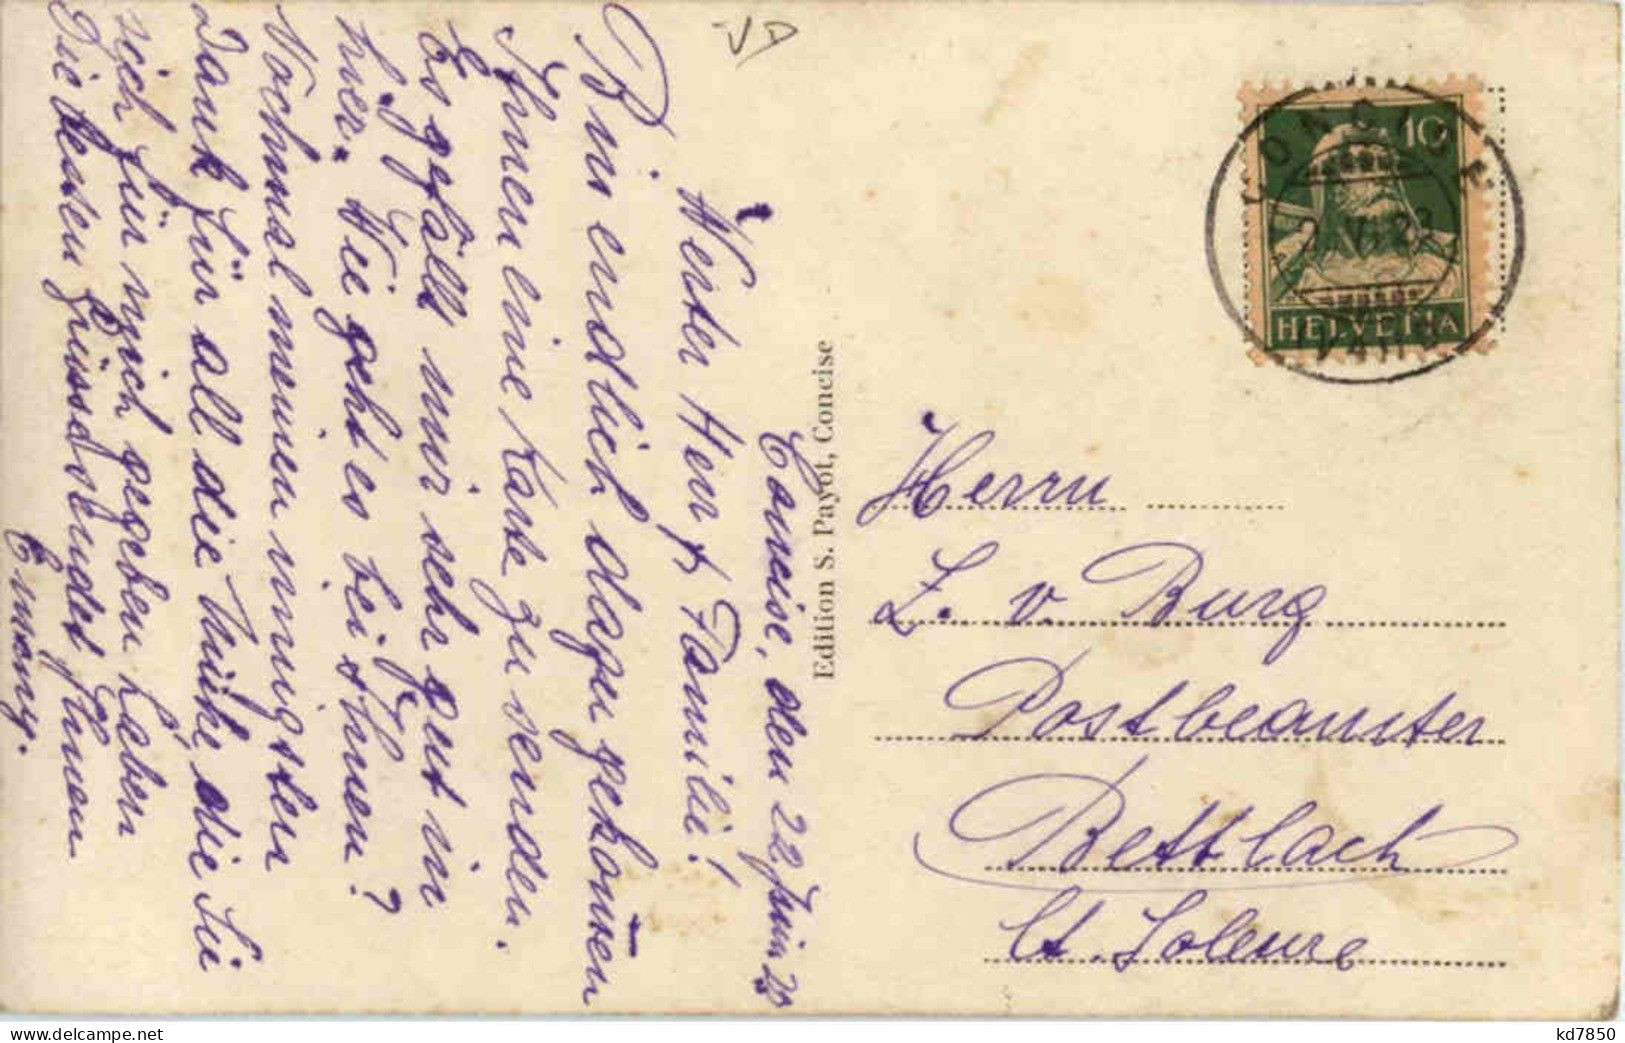 Concise, den 22 Juni 23
Werter Herr & Familie!
Bin endlich dazu gekommen
Ihnen eine Karte zu senden.
Es gefällt mir sehr gut in
hier. Wie geht es bei Ihnen?
Nochmal meinen innigsten
Dank für all die Mühe, die Sie
sich für mich gegeben haben
Die besten Grüsse sendet Ihnen
Emmy.
Edition S. Payot, Concise
CONCISE
10
HELVETIA
Herrn
Z. v. Burg
Postbeamter
Bettlach
Ct. Soleure
kd7850